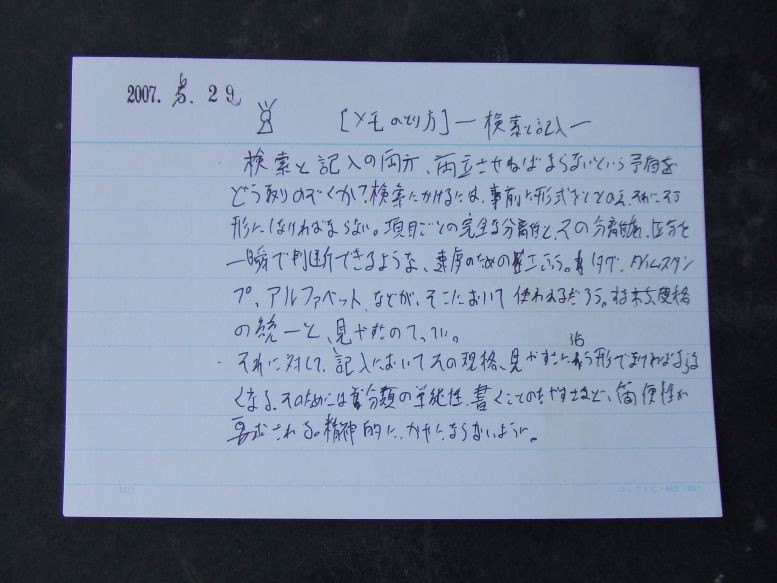 2007. 5. 29
[メモのとり方] ー検索と記入ー
・検索と記入の両方、両立させねばならないという矛盾を
どう取りのぞくか？検索にかけるには、事前に形式をととのえ、それにそう
形にしなければならない。項目ごとの完全な分離と、その分離、区分を
一瞬で判断できるような、速度のための工夫。タグ、タイムスタン
プ、アルファベット、などが、そこにおいて使われるだろう。規格
の統一と、見やすさの
・それに対して、記入においてその規格、見やすさに沿う形でなければならな
くなる。そのためには分類の単純性、書くことのたやすさなど、簡便性が
要求される。精神的に、かせにならないように。